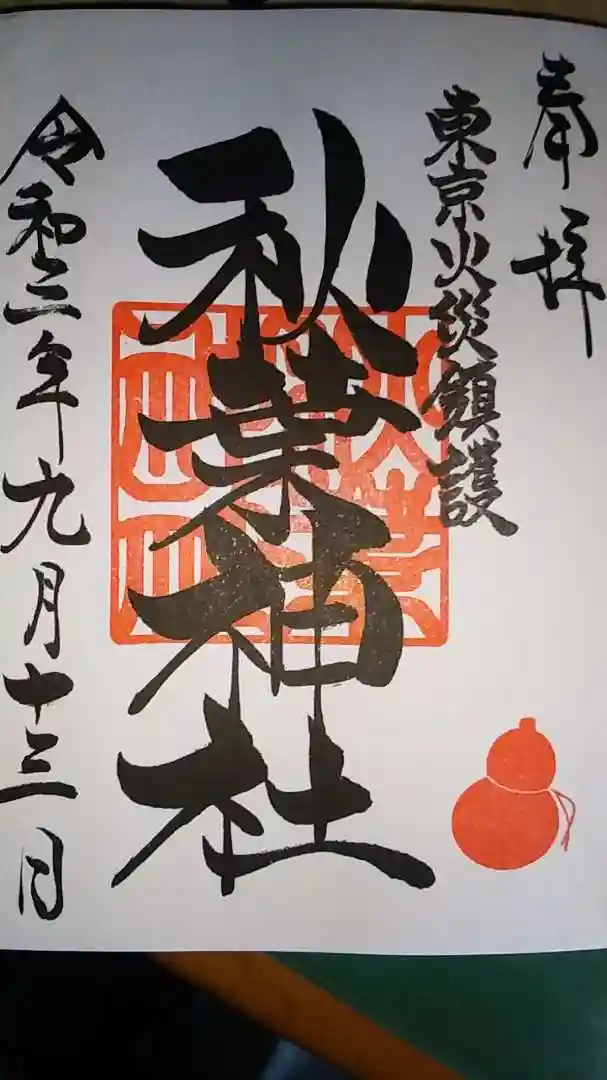 奉拝
東京火災鎮護
秋葉神社
令和三年九月十三日